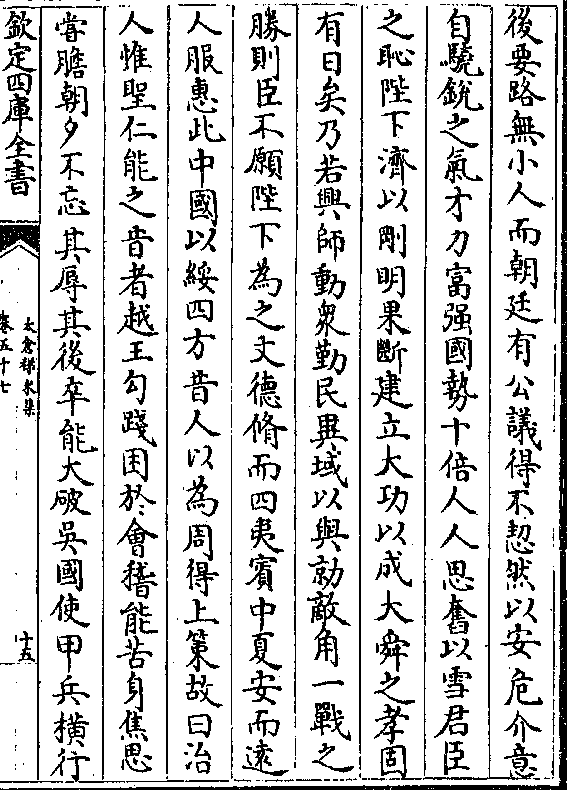 後要路無小人而朝廷有公議得不恝然以安危介意
自驍銳之氣才力富强國勢十倍人人思奮以雪君臣
之恥陛下濟以剛明果斷建立大功以成大舜之孝固
有日矣乃若興師動衆勤民異域以與勍敵角一戰之
勝則臣不願陛下為之文德脩而四夷賓中夏安而遠
人服惠此中國以綏四方昔人以為周得上策故曰治
人惟聖仁能之昔者越王勾踐困於會稽能苦身焦思
嘗膽朝夕不忘其辱其後卒能大破吳國使甲兵橫行
欽定四庫全書
太倉稊米集
卷五十七
十五